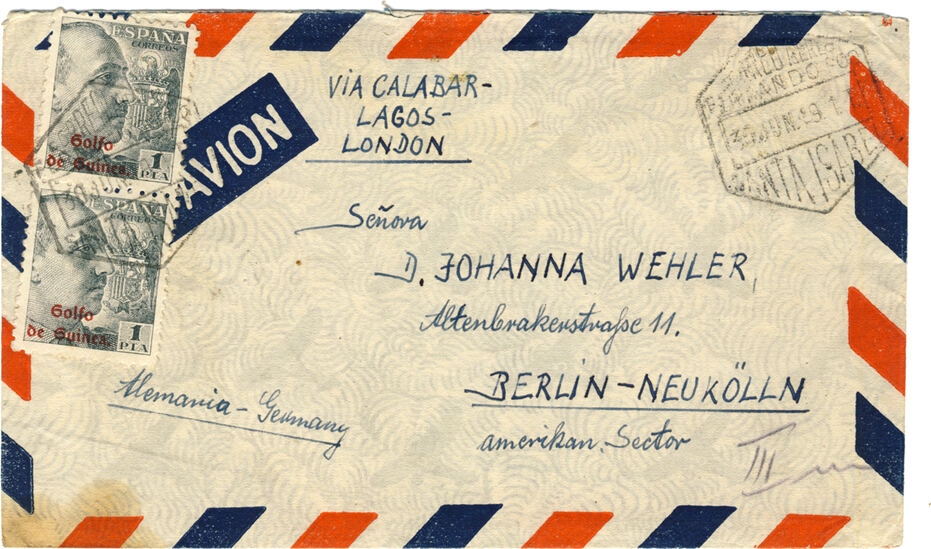 ESPAÑA
CORREOS
Golfo
de Guinea.
1
PTA
ESPAÑA
CORREOS
Golfo
de Guinea.
1
PTA
AVION
VIA CALABAR-
LAGOS-
LONDON
FERNANDO POO
30 JUN. 49
SANTA ISABEL
Señora
D. JOHANNA WEHLER,
Altenbrakerstraße 11.
BERLIN-NEUKÖLLN
amerikan. Sector
Alemania-Germany
III